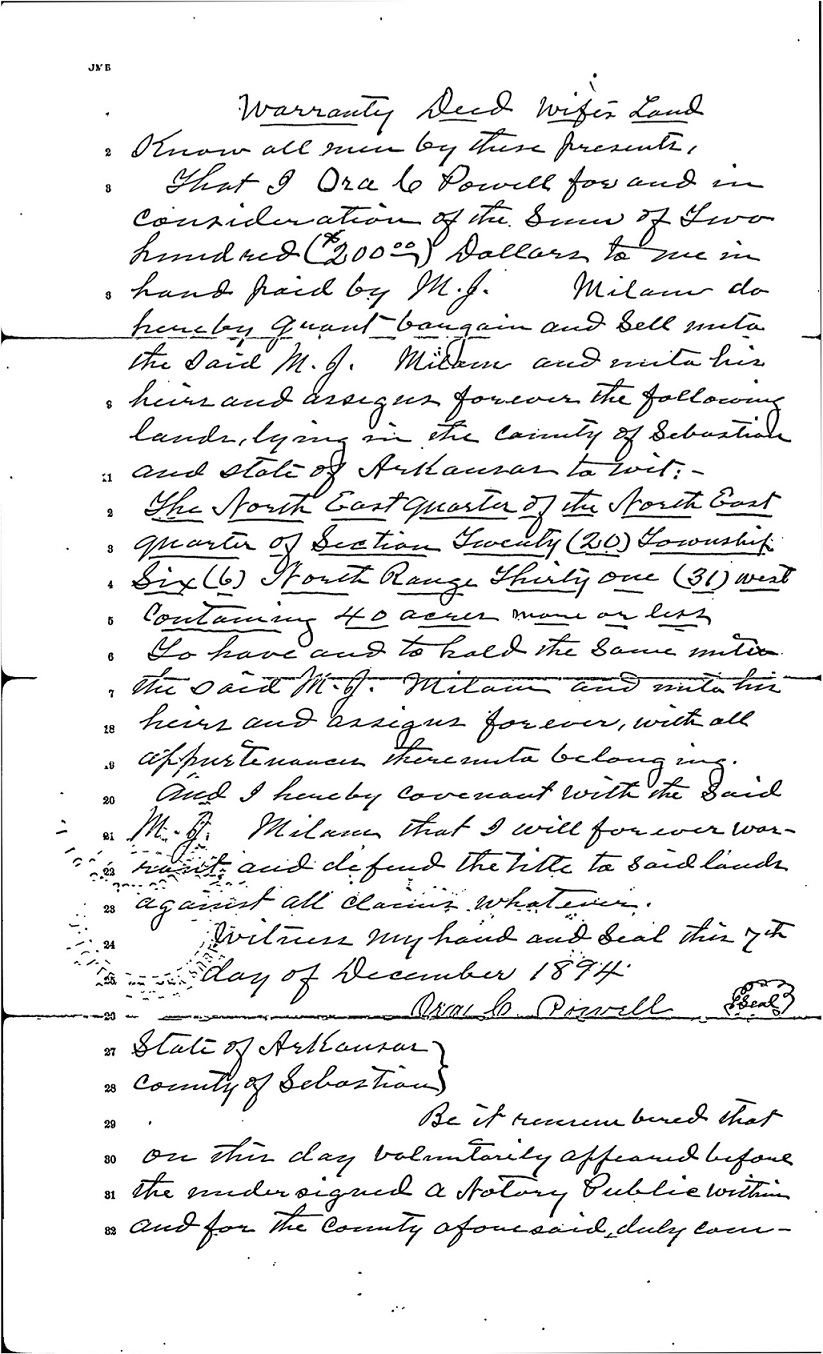 JNB
Warranty Deed Wife's Land
2 Know all men by these presents,
3 That I Ora C Powell for and in
consideration of the Sum of Two
hundred ($200.00) Dollars to me in
8 hand paid by M.J. Milam do
hereby grant bargain and Sell unto
the said M.J. Milam and unto his
9 heirs and assigns forever the following
lands, lying in the county of Sebastian
11 and state of Arkansas to wit:-
2 The North East Quarter of the North East
3 quarter of Section Twenty (20) Township
4 Six (6) North Range Thirty one (31) west
5 Containing 40 acres more or less
6 To have and to hold the Same unto
7 the said M.J. Milam and unto his
18 heirs and assigns forever, with all
19 appurtenances thereunto belonging.
20 And I hereby covenant with the Said
21 M.J. Milam that I will forever war-
22 rant and defend the title to said lands
23 against all claims whatever.
24 Witness my hand and Seal this 7th
25 day of December 1894
26 Ora C Powell Seal
27 State of Arkansas }
28 County of Sebastian }
29 Be it remembered that
30 on this day voluntarily appeared before
31 the undersigned a Notary Public within
32 and for the County aforesaid, duly com-